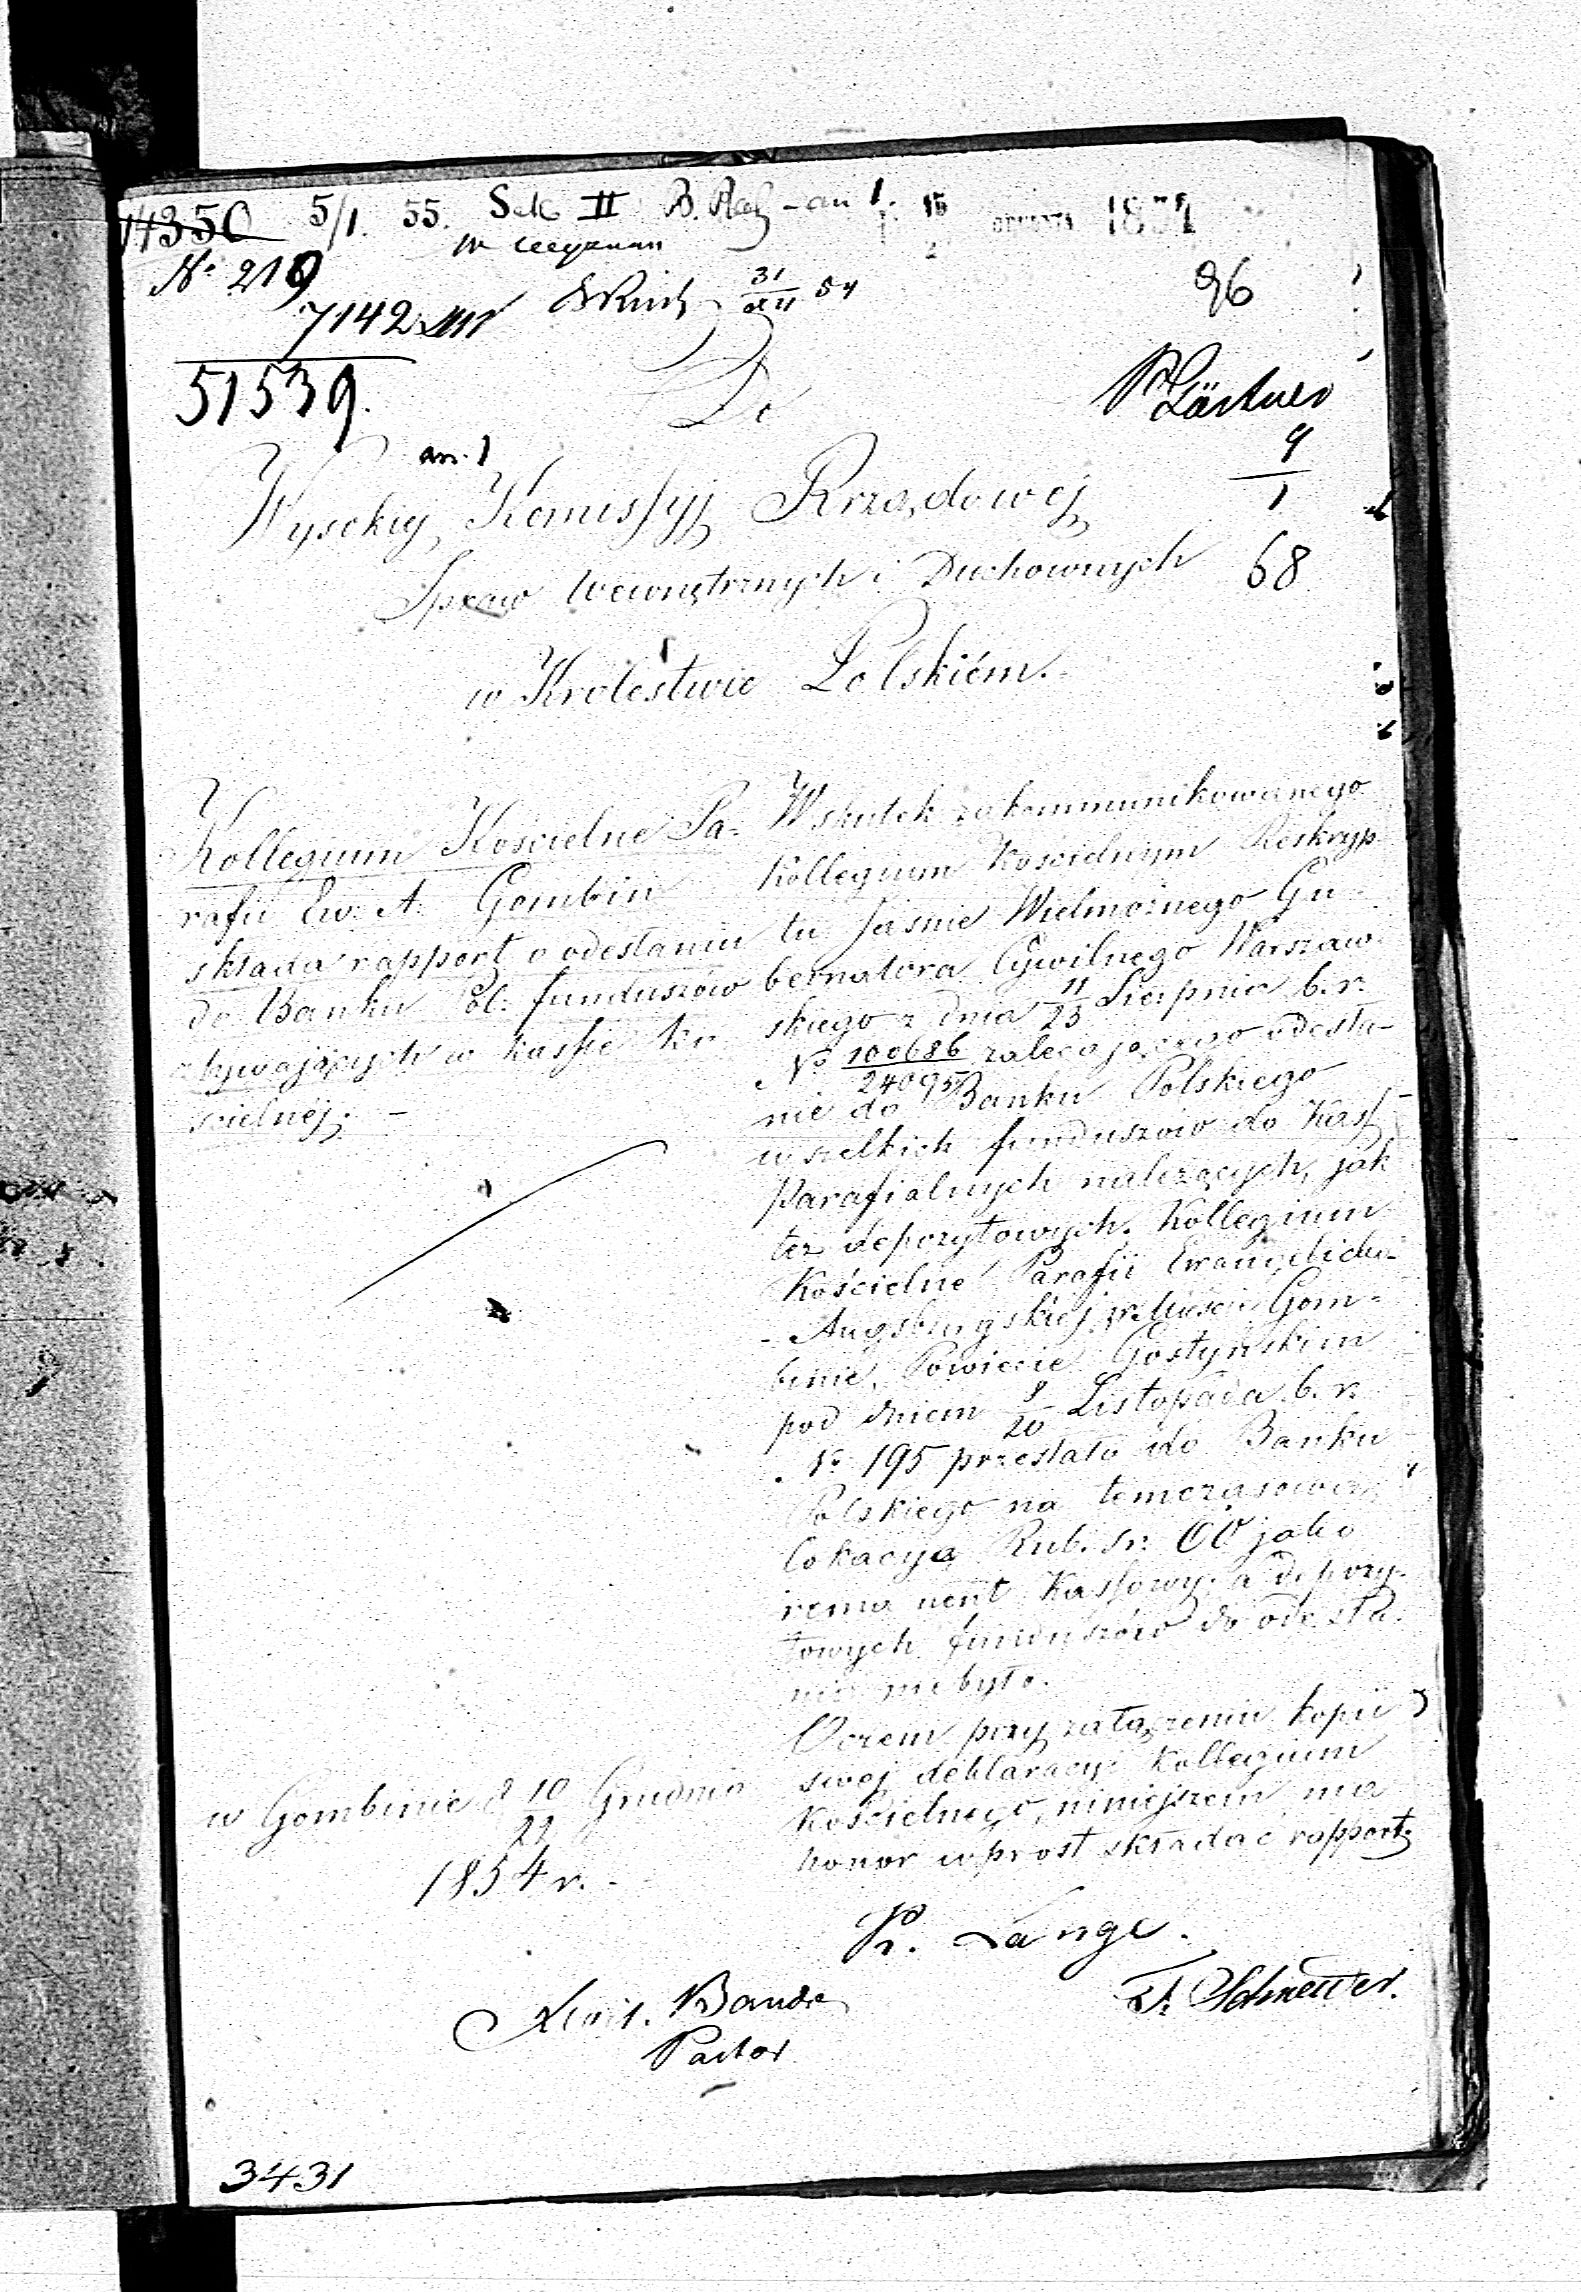 14350 5/1. 55. Sek II
1854
No 219
31/XII 54
96
7142
51539.
Do
9/1
Wysokiej Komissyj Rrządowej
68
Spraw Wewnętrznych i Duchownych
w Królestwie Polskiém.
Kollegium Kościelne Pa-
rafii Ew. A. Gombin
składa rapport o odesłaniu
do Banku Pol. funduszów
bywających w kassie ko-
scielnéj. -
Wskutek zakommunikowanego
Kollegium Kościelnym Reskryp-
tu Jaśnie Wielmożnego Gu-
bernatora Cywilnego Warszaw-
skiego z dnia 11/23 Sierpnia b. r.
No 100686/24095 zalecającego odesła-
nie do Banku Polskiego
wszelkich funduszów do Kass
Parafialnych należących, jak
też depozytowych. Kollegium
Kościelne Parafii Ewangelicko-
- Augsburgskiej w Mieście Gom-
binie, Powiecie Gostyńskim
pod dniem 8/20 Listopada b. r.
No 195 przesłało do Banku
Polskiego na temczasową
lokacyą Rub. sr. 60 jako
remanent Kassowy, a depozy-
towych funduszów do odesła-
nia niebyło.
O czem przy załączeniu kopii
swej deklaracyi Kollegium
Kościelnego, niniejszem ma
honor wprost składać rapport.
w Gombinie d 10/22 Grudnia
1854 r. -
K. Lange.
Bando
Pastor
3431